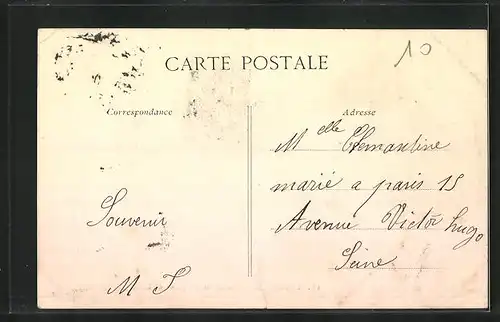 10
CARTE POSTALE
Correspondance
Adresse
Melle Clemantine
marié a paris 15
Avenue Victor hugo
Seine
Souvenir
M J